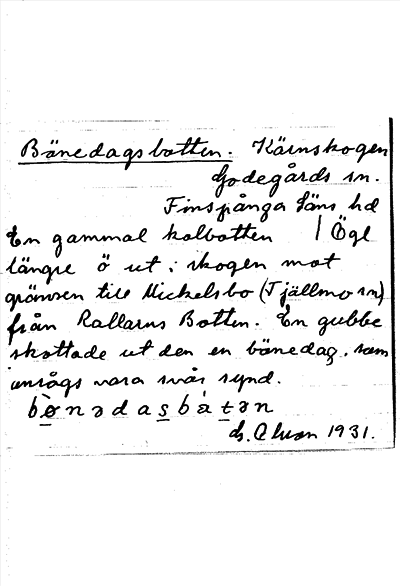 Bänedagsbotten. Kärnskogen
Godegårds sn.
Finspånga läns hd
En gammal kolbotten / Ögl
längre ö ut i skogen mot
gränsen till Mickelsbo (Tjällmo sn)
från Rallarns Botten. En gubbe
skottade ut den en bänedag, som
ansågs vara svår synd.
bònədasbàtən
1931.